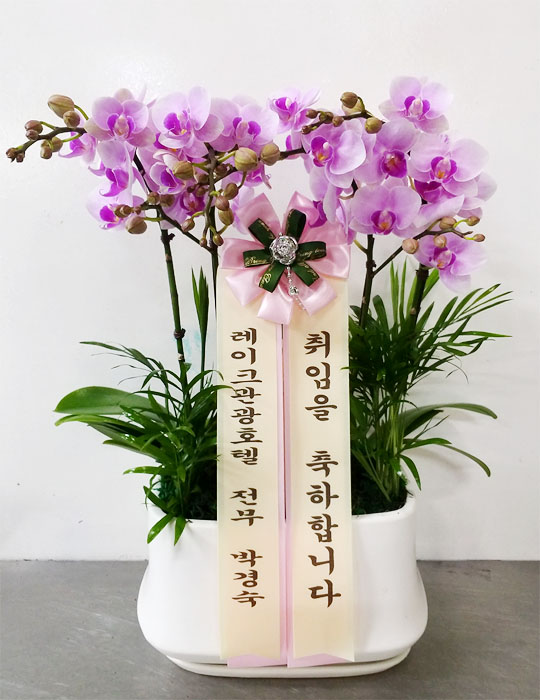 취임을 축하합니다
레이크관광호텔 전무 박경숙